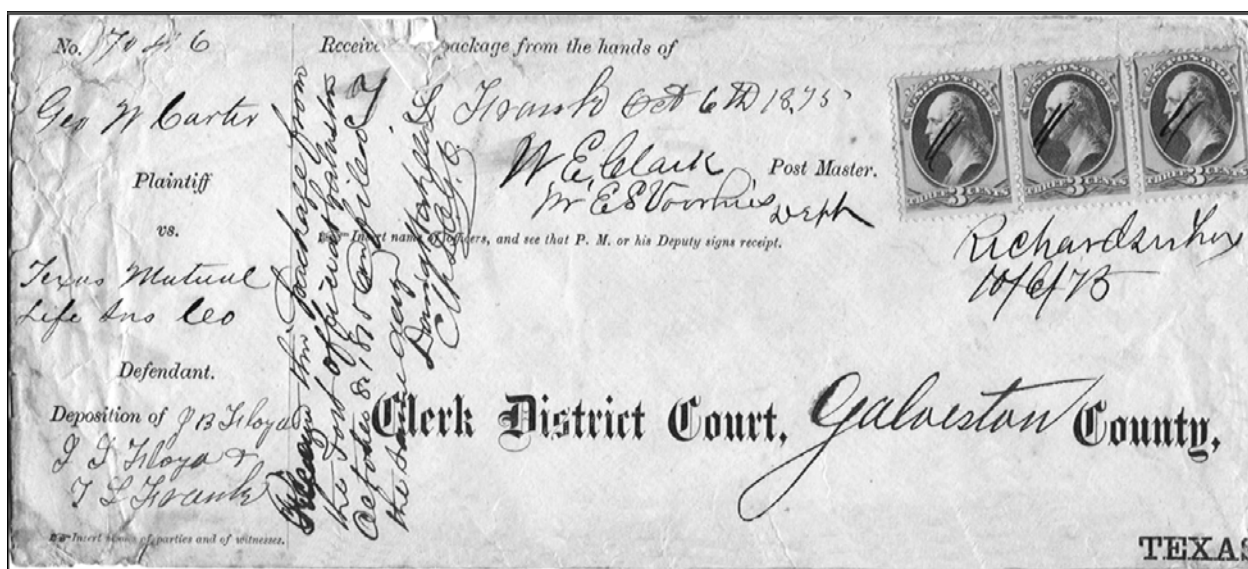 No. 7046
Geo W Carter
Plaintiff
vs.
Texas Mutual
Life Ins Co
Defendant.
Deposition of J B Floyd
J S Floyd &
T L Frank
Insert names of parties and of witnesses.
this package from
the Post office at Galveston
October 8th 1875 and filed
the same day
Received package from the hands of
L Frank Oct 6th 1875
W. E. Clark Post Master.
pr E S Voorhies Depty
Insert name of officers, and see that P. M. or his Deputy signs receipt.
U.S. POSTAGE
THREE 3 CENTS
U.S. POSTAGE
THREE 3 CENTS
U.S. POSTAGE
THREE 3 CENTS
Richardson Tex
10/6/75
Clerk District Court, Galveston County,
TEXAS